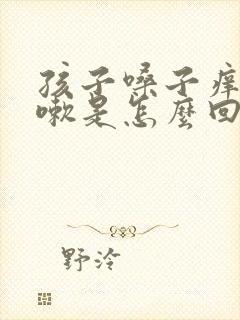 孩子嗓子痒
嗽是怎麼回
野泠